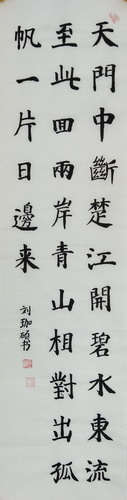 天門中斷楚江開碧水東流
至此回兩岸青山相對出孤
帆一片日邊来
刘珈硕书